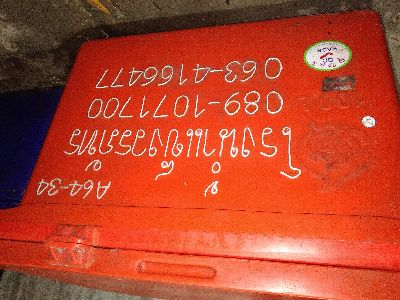 A64-34
โรงน้ำแข็งวรภัทร
089-1071700
063-4166477